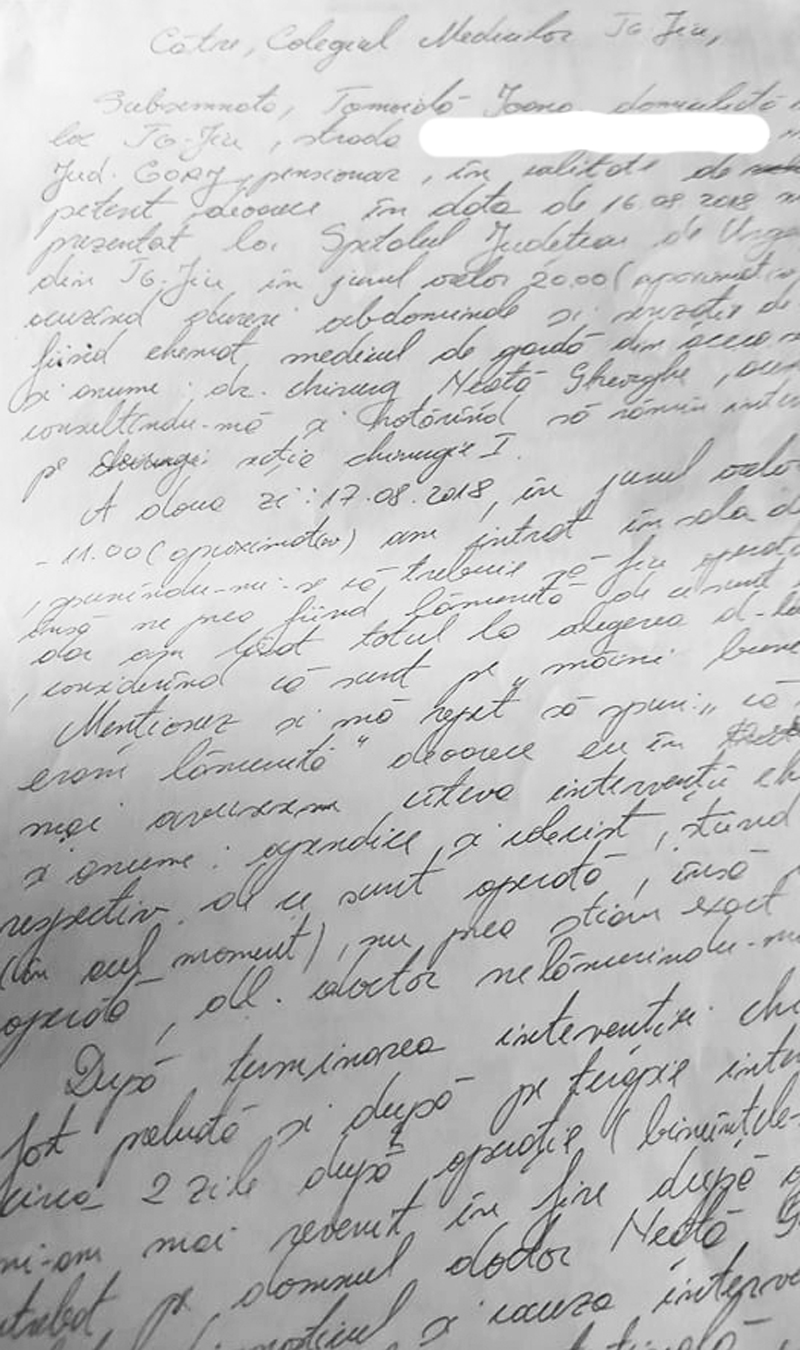 Către, Colegiul Medicilor TG Jiu,
Subsemnata, Ioana, domiciliată
loc TG-Jiu, strada
Jud. GORJ, pensionar, în calitate de
petent deoarece în data de 16.08.2018
prezentat la Spitalul Județean de
din TG-Jiu, în jurul orelor 20.00 (aproximativ
acuzînd dureri abdominale și senzație de
fiind chemat medicul de gardă din
și anume: dr. chirurg Neață Gheorghe,
consultîndu-mă și hotărînd să rămîn
pe secție chirurgie I.
A doua zi: 17.08.2018, în jurul orelor
-11.00 (aproximativ) am intrat în sala de
, spunîndu-mi-se că trebuie să fiu
însă ne prea fiind lămurită de ce sunt
dar am lăsat totul la alegerea
, considerînd că sunt pe „mâini bune
Menționez și mă repet să spun: „că
eram lămurită" deoarece eu în
mai avusesem cîteva intervenții
și anume: apendice și colecist, știind
respectiv de ce sunt operată, însă
(în acel moment), nu prea știam exact
operată, dl. doctor nelămurindu-mă
După terminarea intervenției
fost preluată și după pe terapie
circa 2 zile după operație (bineînțeles
mi-am mai revenit în fire după
întrebat pe domnul doctor Neață
și cauza